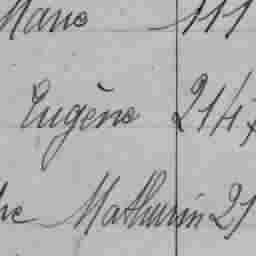 Marie 111
Eugène 214
Mathurin 21